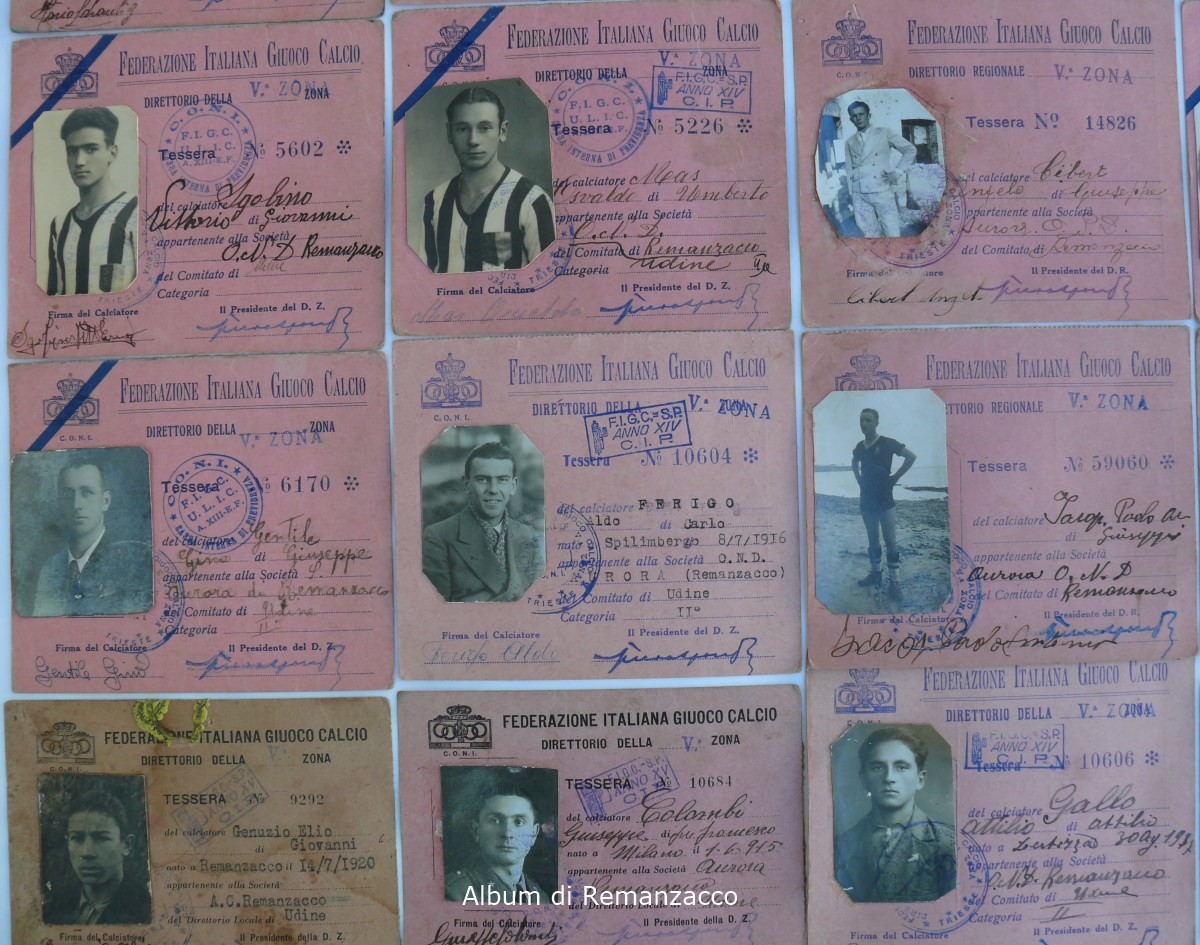 FEDERAZIONE ITALIANA GIUOCO CALCIO
C.O.N.I.
DIRETTORIO DELLA V.ª ZONA ZONA
F.I.G.C.
U.L.I.C.
A. XIII E.F.
CASSA INTERNA DI PREVIDENZA
Tessera № 5602
del calciatore Sgobino
Vittorio di Giovanni
appartenente alla Società
O.N.D Remanzacco
del Comitato di Udine
Categoria
Firma del Calciatore
Il Presidente del D. Z.
FEDERAZIONE ITALIANA GIUOCO CALCIO
DIRETTORIO DELLA V.ª ZONA ZONA
F.I.G.C.-S.P.
ANNO XIV
C.I.P.
C.O.N.I.
F.I.G.C.
U.L.I.C.
CASSA INTERNA DI PREVIDENZA
Tessera № 5226
del calciatore Mas
Osvaldo di Umberto
appartenente alla Società
O.N.D.
del Comitato di Remanzacco
Categoria Udine IIa
Firma del Calciatore
Il Presidente del D. Z.
FEDERAZIONE ITALIANA GIUOCO CALCIO
C.O.N.I.
DIRETTORIO REGIONALE V.ª ZONA
Tessera № 14826
del calciatore Cibert
Angelo di Giuseppe
Aurora O.N.D.
del Comitato di Remanzacco
Firma del Calciatore
Il Presidente del D. R.
Cibert Angelo
FEDERAZIONE ITALIANA GIUOCO CALCIO
C.O.N.I.
DIRETTORIO DELLA V.ª ZONA
C.O.N.I.
F.I.G.C.
U.L.I.C.
A. XIII E.F.
CASSA INTERNA DI PREVIDENZA
Tessera № 6170
del calciatore Gentile
Gino di Giuseppe
appartenente alla Società
Aurora di Remanzacco
del Comitato di Udine
Categoria II
TRIESTE
Firma del Calciatore
Il Presidente del D. Z.
Gentile Gino
FEDERAZIONE ITALIANA GIUOCO CALCIO
C.O.N.I.
DIRETTORIO DELLA V.ª ZONA ZONA
F.I.G.C.-S.P.
ANNO XIV
C.I.P.
Tessera № 10604
del calciatore FERIGO
Aldo di Carlo
nato a Spilimbergo 8/7/1916
appartenente alla Società O.N.D.
AURORA (Remanzacco)
del Comitato di Udine
Categoria II°
TRIESTE
Firma del Calciatore
Il Presidente del D. Z.
Ferigo Aldo
FEDERAZIONE ITALIANA GIUOCO CALCIO
DIRETTORIO REGIONALE V.ª ZONA
Tessera № 59060
del calciatore
Paolo di
Giuseppe
appartenente alla Società
Aurora O.N.D
del Comitato di Remanzacco
Firma del Calciatore
Il Presidente del D. R.
FEDERAZIONE ITALIANA GIUOCO CALCIO
C.O.N.I.
DIRETTORIO DELLA V.ª ZONA
TESSERA № 9292
del calciatore Genuzio Elio
di Giovanni
nato a Remanzacco il 14/7/1920
appartenente alla Società
A.C.Remanzacco
del Direttorio Locale di Udine
Firma del Calciatore
Il Presidente del D. Z.
FEDERAZIONE ITALIANA GIUOCO CALCIO
C.O.N.I.
DIRETTORIO DELLA V.ª ZONA
F.I.G.C.-S.P.
ANNO XV
C.I.P.
TESSERA № 10684
del calciatore Colombi
Giuseppe di fu Francesco
nato a Milano il 1-6-915
appartenente alla Società Aurora
Remanzacco
del Direttorio Locale di Udine
Firma del Calciatore
Il Presidente del D. Z.
FEDERAZIONE ITALIANA GIUOCO CALCIO
C.O.N.I.
DIRETTORIO DELLA V.ª ZONA
F.I.G.C.-S.P.
ANNO XIV
C.I.P.
Tessera № 10606
del calciatore Gallo
Attilio di Attilio
nato a
appartenente alla Società
O.N.D. Remanzacco
del Comitato di Udine
Categoria II
TRIESTE
Firma del Calciatore
Il Presidente del D. Z.
Album di Remanzacco